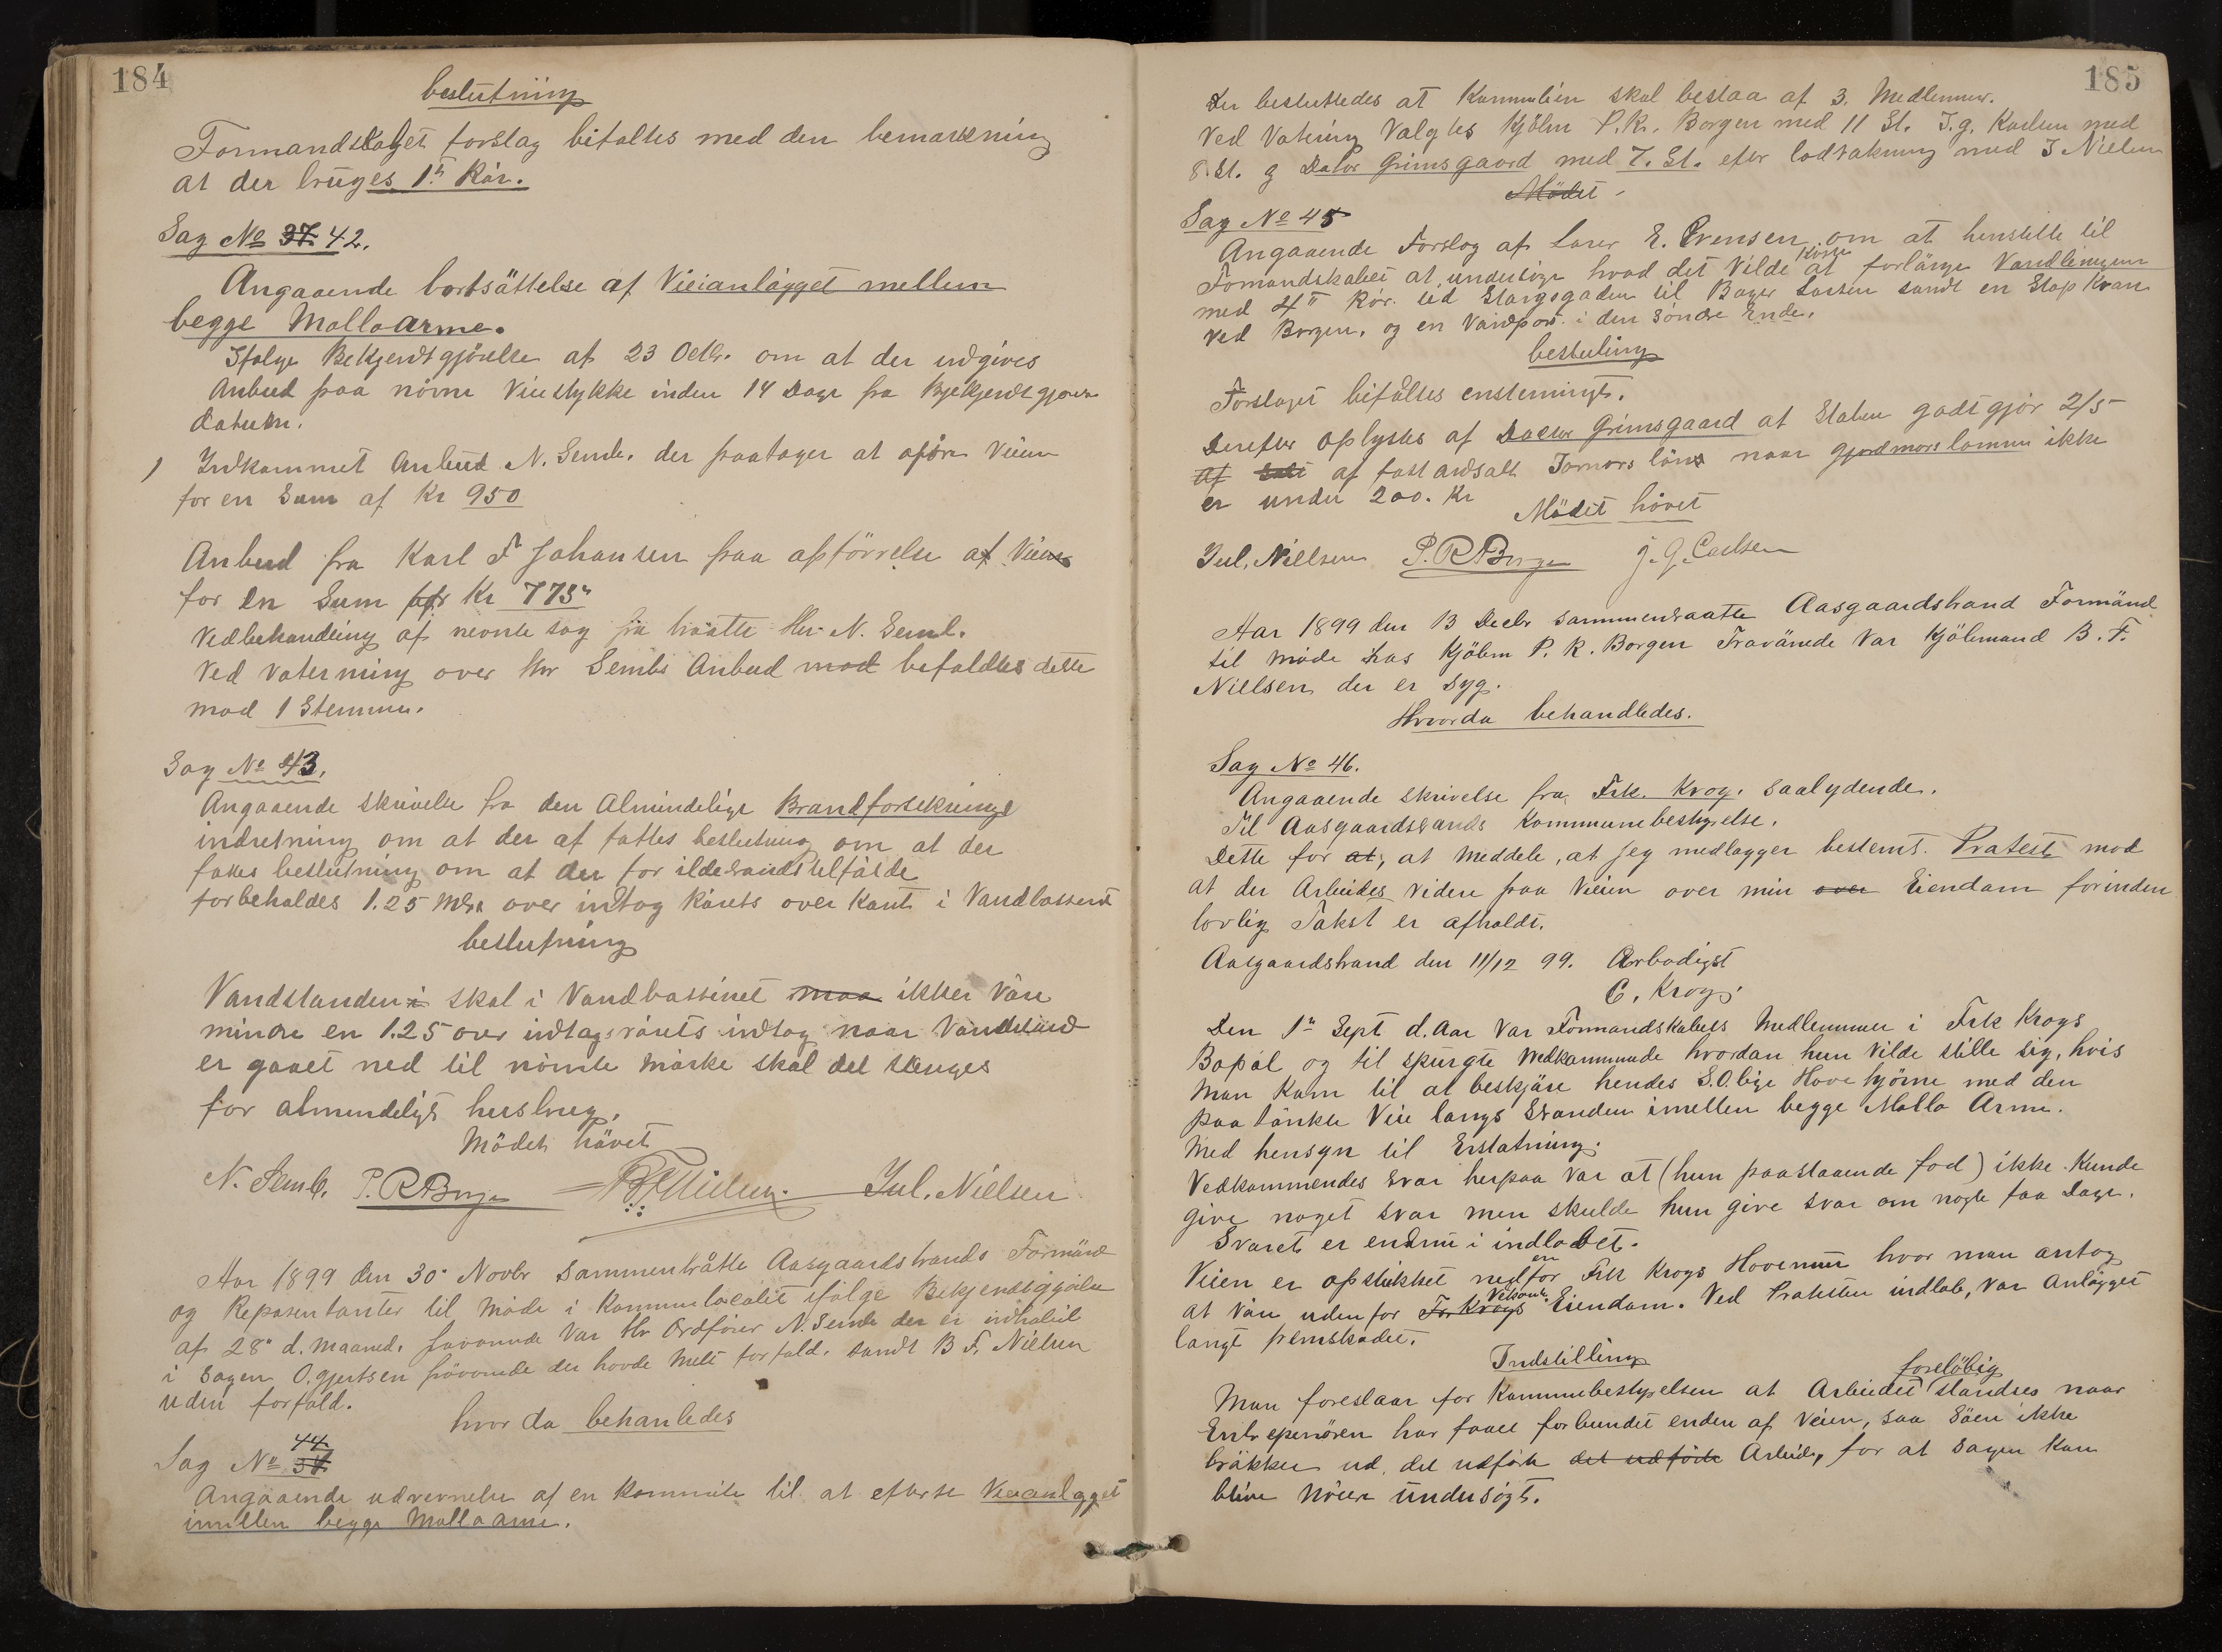 184
beslutning
Formandskabet forslag bifaltes med den bemærkning
at der bruges 1" Rör.
Sag No 37 42.
Angaaende bortsättelse af Vieianlägget mellem
begge Molloarme.
Ifölge Bekjendtgjörelse af 23 Octbr. om at der udgives
Anbud paa növne Viestykke inden 14 Dage fra
Datum.
1 Indkommet Anbud N. Semb. der paatager at Vieien
for en Sum af Kr 950
Anbud fra Karl F Johansen paa opförrelse af Vieien
for en Sum Kr 775"
Vedbehandling af nevnte sag traatte Hr. N. Semb.
Ved votering over Hr Sembs Anbud mod befaldtes dette
mod 1 Stemme.
Sag No 43.
Angaaende skrivelse fra den Almindelige Brandforsekrings
indretning om at der af fattes beslutning om at der
fattes beslutning om at der for ildebrandstilfälde
forbeholdes 1.25 Mtr over intag Rörets over Kant i Vandbassenet
beslutning
Vandstanden i skal i Vandbassinet maa ikke väre
mindre en 1.25 over indtagsrörets indtag naar Vandstand
er gaaet ned til nömte Märke skal det stenges
for almendeligt husbrug.
Mödet hävet
N. Semb. P. R Borgen B F Nielsen. Jul. Nielsen
Aar 1899 den 30" Novbr sammentråtte Aasgaardstrands Formänd
og Reposentanter til Möde i Kommunlocalet ifölge Bekjendtgjörelse
af 28" d. Maaned. Var Hr Ordförer N. Semb der er inhabil
i Sagen O. Gjertsen der havde Melt forfald. samt B F. Nielsen
uden forfald.
hvor da behanledes
Sag No 44 38
Angaaende udnevnelse af en Kommite til at efterse Vieianlegget
imellem begge Molloarme.
185
Der besluttedes at Kommiteen skal bestaa af 3. Medlemmer.
Ved Votering Valgtes Kjöbm P. R. Borgen med 11 St. J. g. Karlsen med
8. St. og Doktor Grimsgaard med 7. St. efter lodtrekning med J Nielsen
Mödet
Sag No 45
Angaaende Forslag af Lärer E. Evensen om at henstille til
Formandskabet at undersöge hvad det Vilde Koste at forlänge Vandledningen
med 4" Rör. ud Storgsgaden til Bager Larsen samt en Stop Kran
Ved Borgen. og en Vandpost i den Söndre Ende.
beslutning
Forslaget bifaltes enstemmigt.
Derefter oplystes af Doctor Grimsgaard at Staten godtgjör 2/5
af af fast ansatt Jormors lön naar gjordmors lönnen ikke
er under 200. Kr
Mödet hövet
Jul. Nielsen P. R Borgen J. G. Carlsen
Aar 1899 den 13 Decbr sammentraatte Aasgaardstrand Formänd
til Möde hos Kjöbm P. R. Borgen Fravärende Var Kjöbmand B. F.
Nielsen der er syg.
Hvorda behandledes.
Sag No 46.
Angaaende skrivelse fra Frk. Krog. saalydende.
Til Aasgaardstrands Kommunebestyrelse.
Dette for at, at Meddele, at jeg nedlagger bestemt. Protest mod
at der Arbeides videre paa Veien over min over Eiendom forinden
lovlig Takst er afholdt.
Aasgaardstrand den 11/12 99. Ærbodigst
C. Krog.
Den 1" Sept d. Aar Var Formandskabets Medlemmer i Frk Krogs
Bopäl og til spurgte Vedkommende hvordan hun Vilde stille sig, hvis
Man Kom til at beskjäre hendes S.O.lige Have hjörne med den
paa tänkte Viei langs Stranden imellem begge Mollo Arme.
Med hensyn til Erstatning.
Vedkommendes svar herpaa Var at (hun paastaaende fod) ikke Kunde
give noget svar men skulde hun give svar om nogle faa Dage.
Svaret er endnu i indlobet.
Veien er opstukket nedenfor Frk Krogs Havemur hvor man antog
at Väre udenfor Frk Krogs Vedkom. Eiendom. Ved Protesten indlob, var Anlägget
langt fremskredet.
Indstilling
Man foreslaar for Kommunebestyrelsen at Arbeidet forelöbig standses naar
Entrepenören har faaet forbundet enden af Veien, saa Söen ikke
bräkker ud det udförte det udförte Arbeide, for at Sagen Kan
blive Nöiere undersögt.